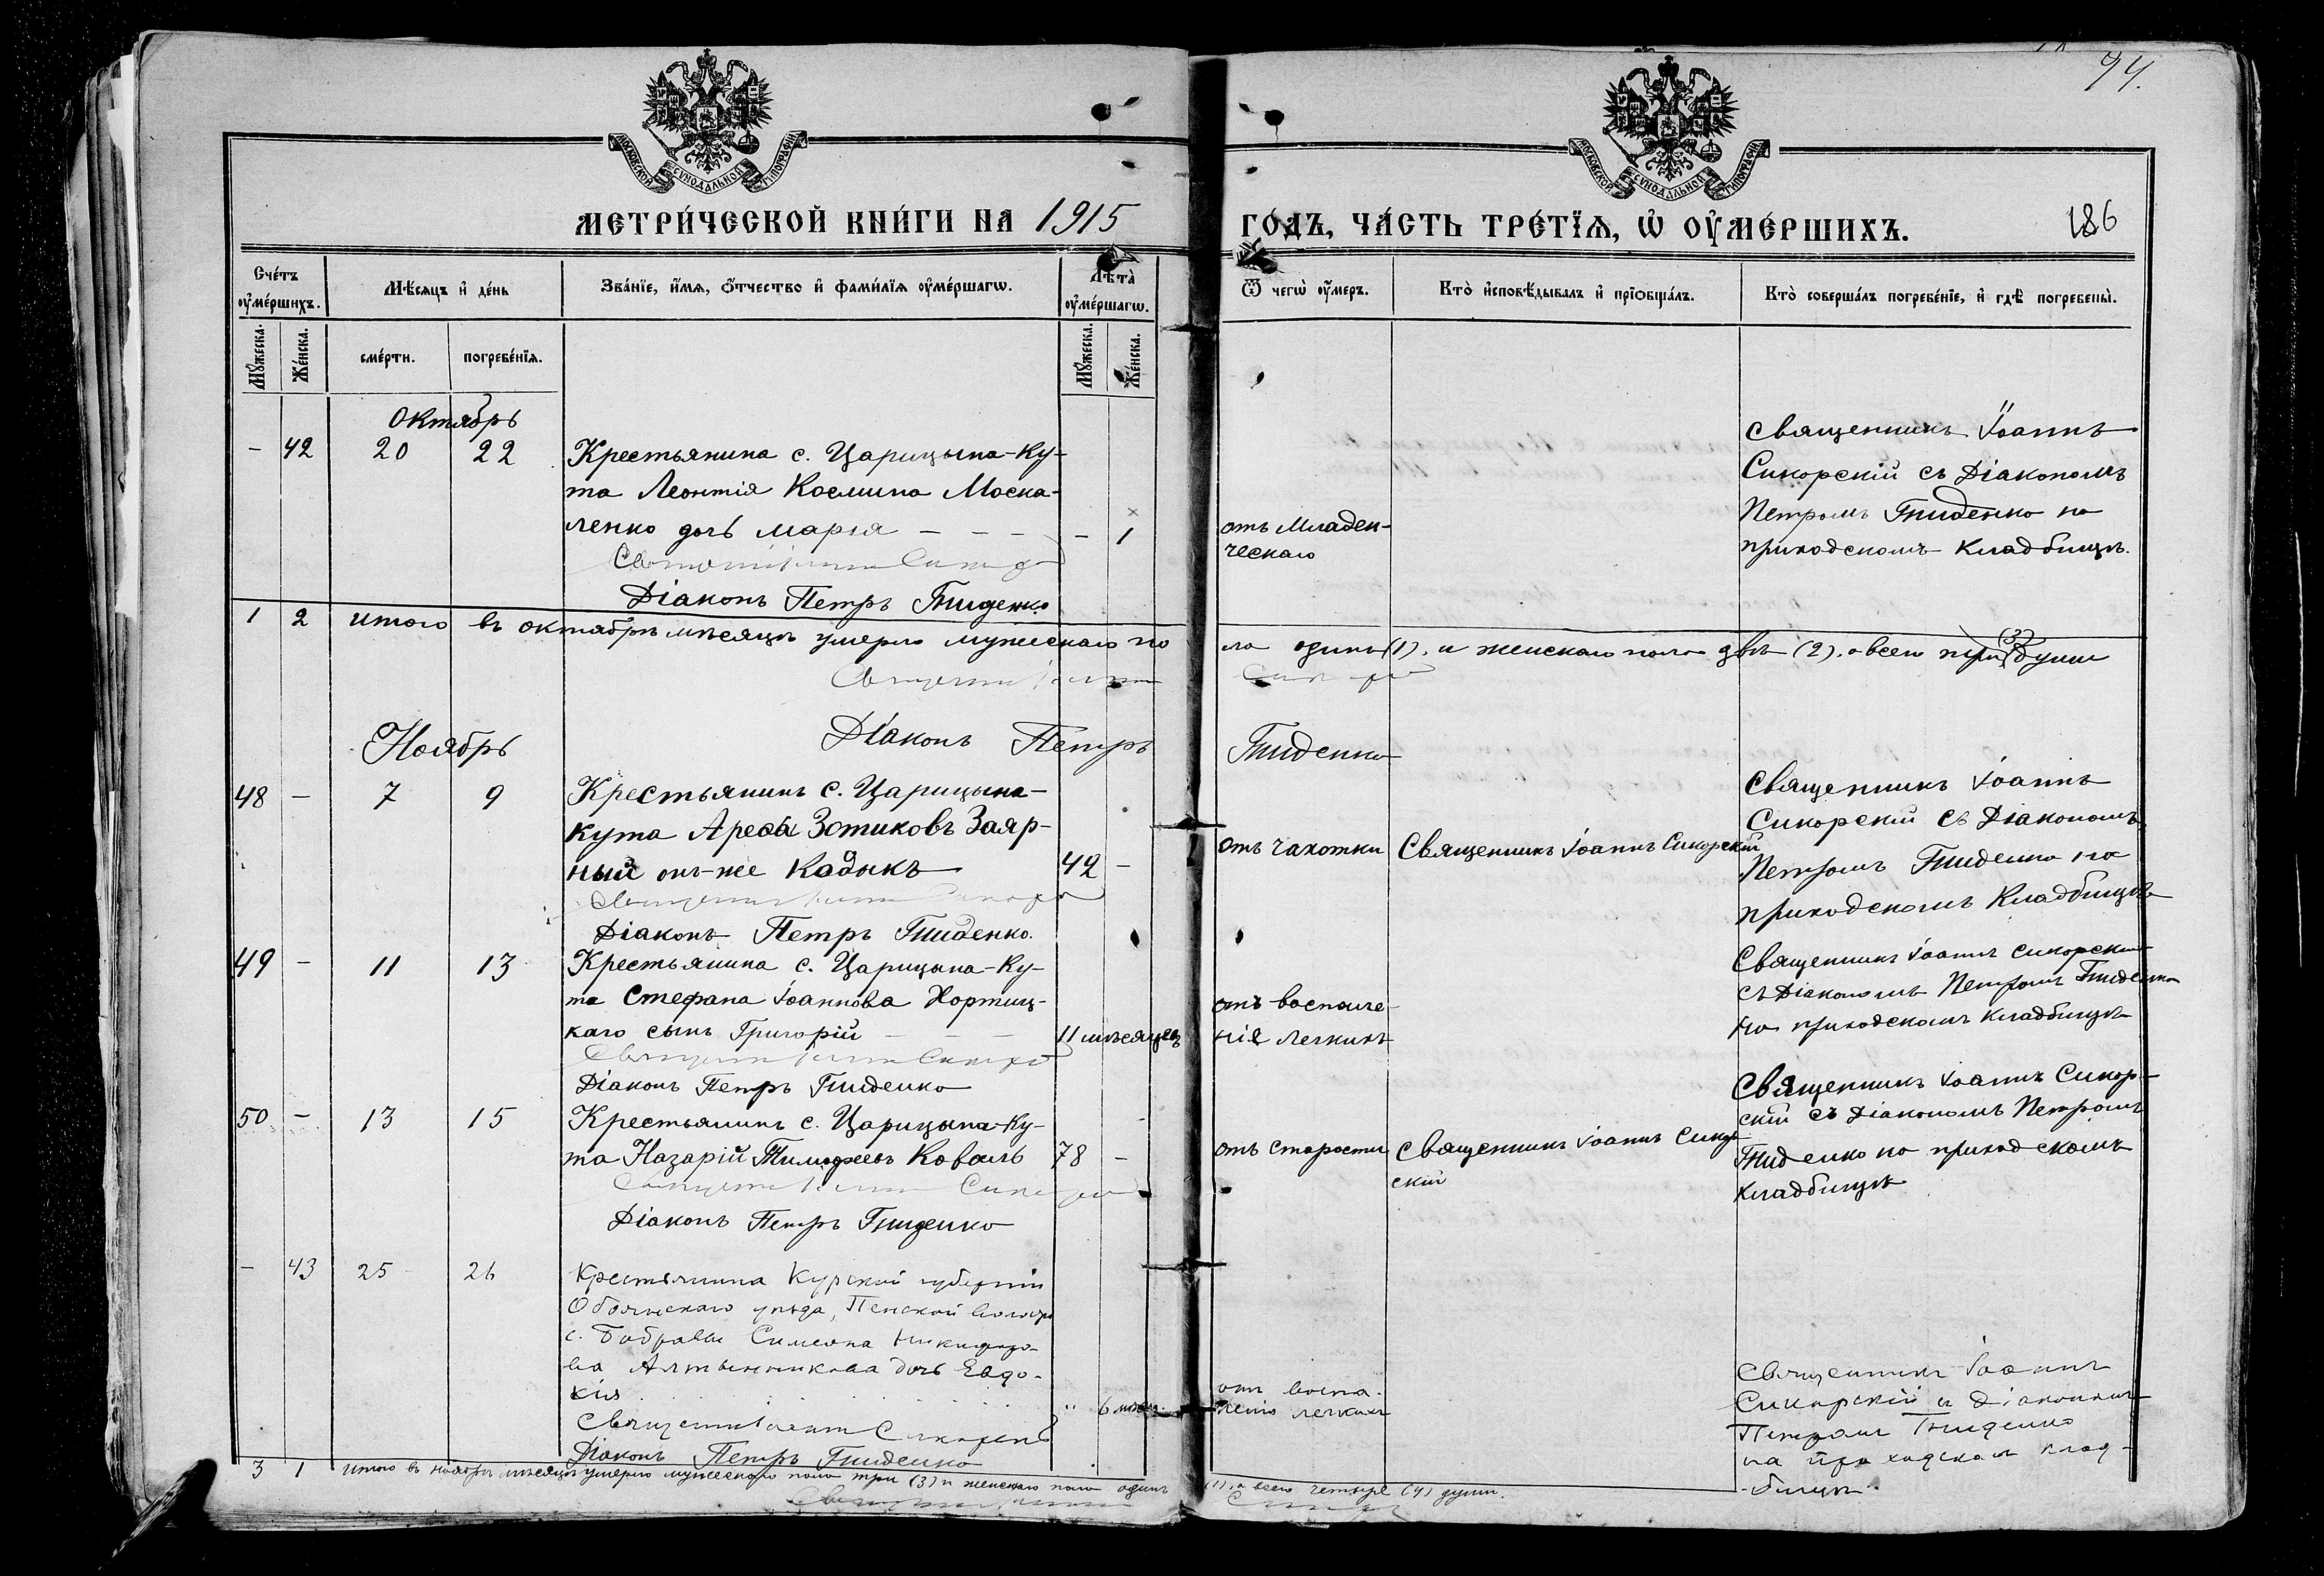 94.
МОСКОВСКОЙ СУНОДАЛЬНОЙ ТИПОГРАФІИ
МОСКОВСКОЙ СУНОДАЛЬНОЙ ТИПОГРАФІИ
МЕТРИ́ЧЕСКОЙ КНИ́ГИ НА 1915
ГО́ДЪ, ЧА́СТЬ ТРЕ́ТІѦ, Ѡ҆ ОУ҆МЕ́РШИХЪ.
186
Сче́тъ оу҆ме́ршихъ.
Мѣ́сяцъ и҆ де́нь
Зва́нїе, и҆́мѧ, ѻ҆́тчество и҆ фами́лїѧ оу҆ме́ршагѡ.
Лѣ́та оу҆ме́ршагѡ.
Ѿ чегѡ̀ оу҆́меръ.
Кто̀ и҆сповѣ́дывалъ и҆ прїѻбща́лъ.
Кто̀ соверша́лъ погребе́нїе, и҆ гдѣ̀ погребены̀.
Мꙋ́жеска.
Же́нска.
сме́рти.
погребе́нїѧ.
Мꙋ́жеска.
Же́нска.
Октябрь
- 42 20 22 Крестьянина с. Царицына-Ку-
та Леонтія Космина Моска-
ленко дочь Марія - - - - 1
Діаконъ Петръ Гниденко
отъ Младен-
ческаго
Священникъ Іоаннъ
Сикорскій съ Діакономъ
Петромъ Гниденко на
приходскомъ Кладбищѣ.
1 2 Итого въ октябрѣ мѣсяцѣ умерло мужескаго по
ла одинъ (1). и женскаго пола двѣ (2). а всего три (3) души
Діаконъ Петръ Гниденко
Ноябрь
48 - 7 9 Крестьянинъ с. Царицына-
Кута Арефа Зотиковъ Заяр-
ный онъ-же Кадыкъ 42 -
Діаконъ Петръ Гниденко.
отъ чахотки Священникъ Іоаннъ Сикорскій
Священникъ Іоаннъ
Сикорскій съ Діакономъ
Петромъ Гниденко на
приходскомъ Кладбищѣ
49 - 11 13 Крестьянина с. Царицына-Ку-
та Стефана Іоаннова Хортиц-
каго сынъ Григорій - - - 11 мѣсяцевъ
Діаконъ Петръ Гниденко
отъ воспале-
нія легкихъ
Священникъ Іоаннъ Сикорскій
съ Діакономъ Петромъ Гниденко
на приходскомъ Кладбищѣ
50 - 13 15 Крестьянинъ с. Царицына-Ку-
та Назарій Тимофеевъ Коваль 78 -
Діаконъ Петръ Гниденко
отъ старости Священникъ Іоаннъ Сикор
скій
Священникъ Іоаннъ Сикор-
скій съ Діакономъ Петромъ
Гниденко на приходскомъ
кладбищѣ
- 43 25 26 Крестьянина Курской губерніи
Обоянскаго уѣзда, Пенской волости
с. Бобравы Симеона Никифоро-
ва Алтынникова дочь Евдо-
кія " 6 мѣсяц.
Священникъ Іоаннъ Сикорскій
Діаконъ Петръ Гниденко
отъ воспа-
ленія легкихъ
Священникъ Іоаннъ
Сикорскій съ Діакономъ
Петромъ Гниденко
на приходскомъ клад-
бищѣ.
3 1 Итого въ ноябрѣ мѣсяцѣ умерло мужескаго пола три (3) и женскаго пола одинъ
(1), а всего четыре (4) души.